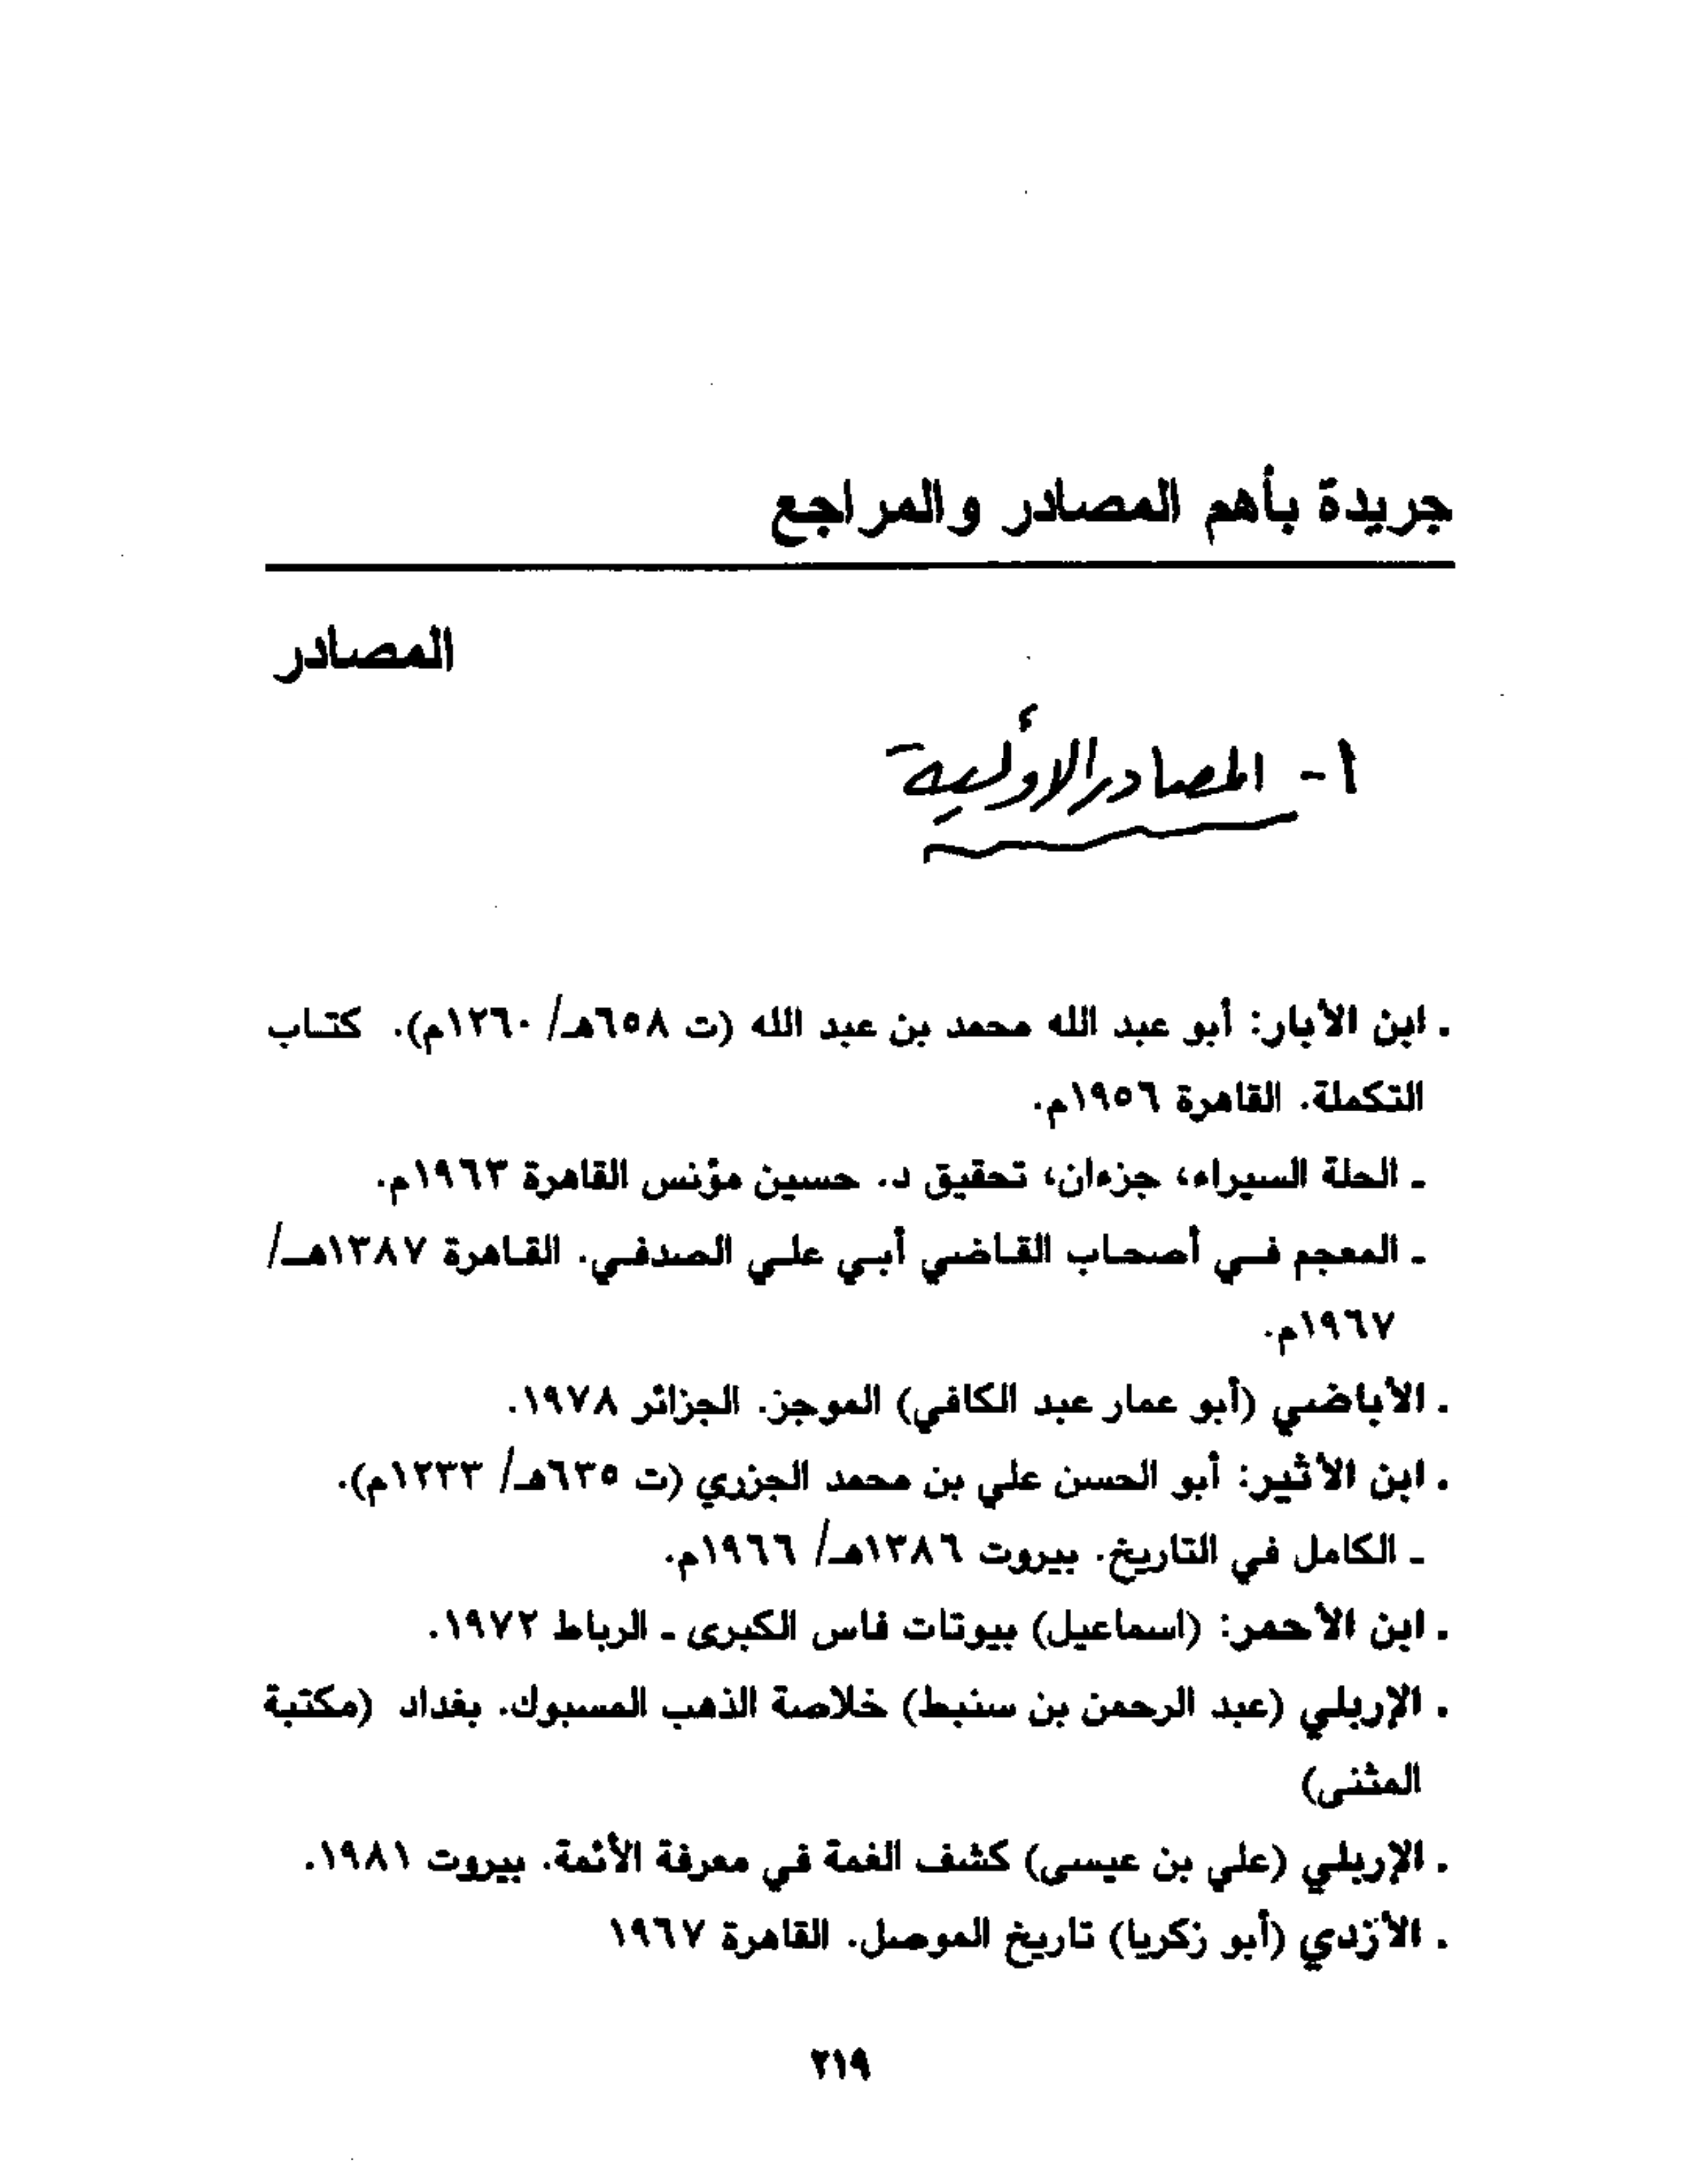 جريدة بأهم المصادر والمراجع
المصادر
١- المصادر الأولية
. ابن الأبار: أبو عبد الله محمد بن عبد الله (ت ٦٥٨هـ/ ١٢٦٠م). كتاب
التكملة. القاهرة ١٩٥٦م.
ـ الحلة السيراء، جزءان، تحقيق د. حسين مؤنس القاهرة ١٩٦٣م.
ـ المعجم في أصحاب القاضي أبي علي الصدفي. القاهرة ١٣٨٧هـ/
١٩٦٧م.
. الأباضي (أبو عمار عبد الكافي) الموجز. الجزائر ١٩٧٨.
. ابن الأثير: أبو الحسن علي بن محمد الجزري (ت ٦٣٥هـ/ ١٢٣٣م).
ـ الكامل في التاريخ. بيروت ١٣٨٦هـ/ ١٩٦٦م.
. ابن الأحمر: (اسماعيل) بيوتات فاس الكبرى ـ الرباط ١٩٧٢.
. الإربلي (عبد الرحمن بن سنبط) خلاصة الذهب المسبوك. بغداد (مكتبة
المثنى)
. الإربلي (علي بن عيسى) كشف الغمة في معرفة الأئمة. بيروت ١٩٨١.
. الأزدي (أبو زكريا) تاريخ الموصل. القاهرة ١٩٦٧
٢١٩